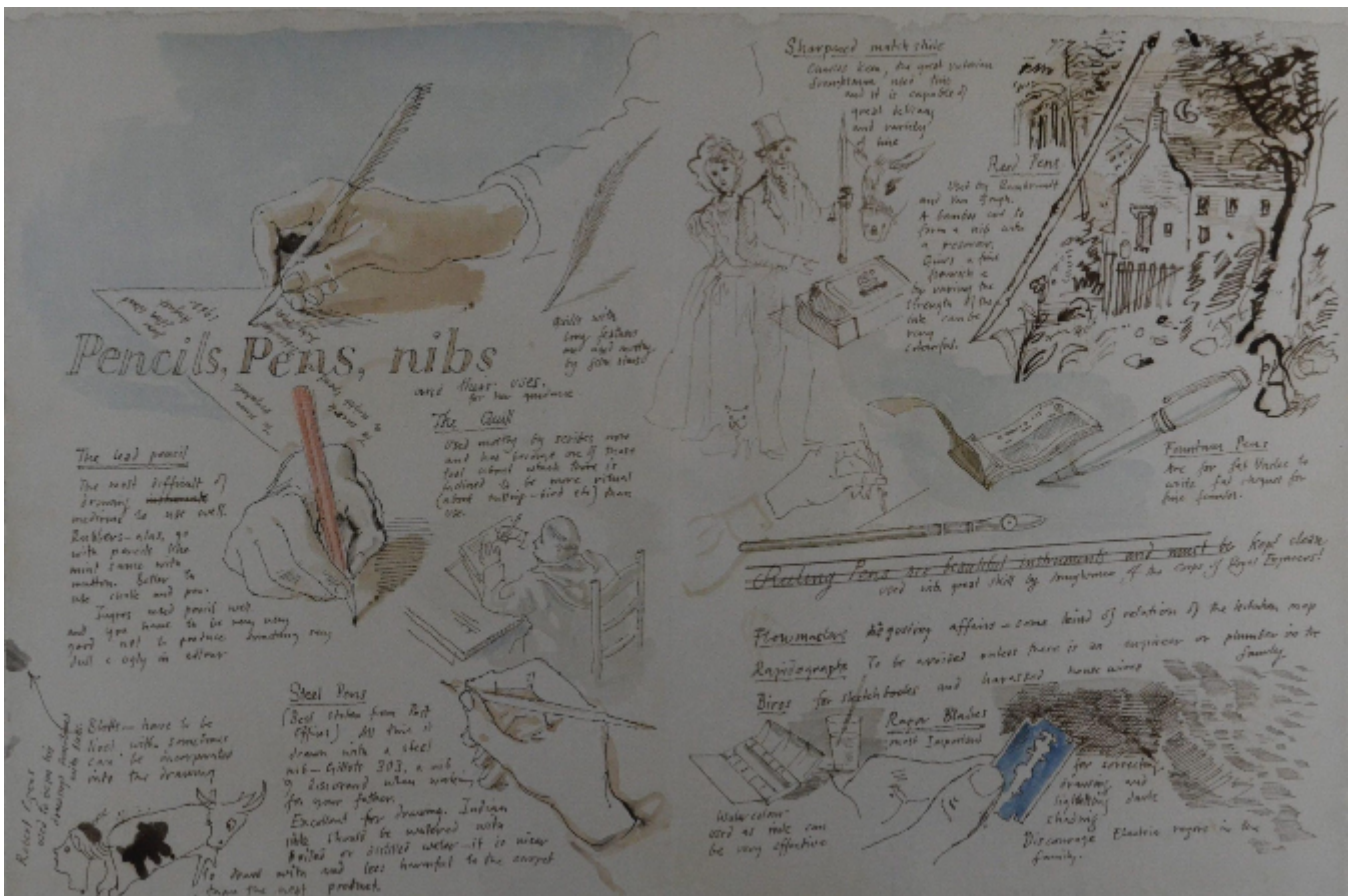 Pencils, Pens, nibs
and their uses.
for her goodness
Quills with
long feathers
are used mostly
by film stars
The lead pencil
The most difficult of
drawing
mediums to use well.
Rubbers – alas, go
with pencils like
mint sauce with
mutton. Better to
use chalk and pen.
Ingres used pencil well
and you have to be very very
good not to produce something very
dull & ugly in colour
The Quill
Used mostly by scribes now
and has become one of those
tools about which there is
inclined to be more ritual
(about cutting – bird etc) than
use.
Steel Pens
(Best stolen from Post
Offices) All this is
drawn with a steel
nib – Gillott 303, a nib
I discovered when working
for your father.
Excellent for drawing. Indian
ink should be watered with
boiled or distilled water – it is nicer
to draw with and less harmful to the carpet
than the neat product.
Blots – have to be
lived with, sometimes
can be incorporated
into the drawing
used to wipe his
Sharpened match stick
Charles Keen, the great Victorian
draughtsman used this
and it is capable of
great delicacy
and variety
of line
Reed Pens
Used by Rembrandt
and Van Gough.
A bamboo cut to
form a nib with
a reservoir.
Gives a fine
flourish &
by varying the
strength of the
ink can be
very
colourful.
Fountain Pens
Are for fat Uncles to
write fat cheques for
nice families.
Ruling Pens are beautiful instruments and must be kept clean
used with great skill by draughtsmen of the corps of Royal Engineers!
Flowmasters disgusting affairs – some kind of relation of the leviathan mop
Rapidographs To be avoided unless there is an engineer or plumber in the
family.
Biros for sketchbooks and harassed housewives
Razor Blades
most important
for correcting
drawing and
lightening dark
shading
Discourage Electric razors in the
family.
Water colour
used as tone can
be very effective